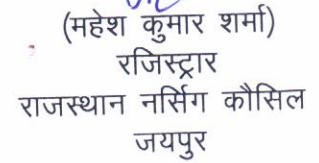 (महेश कुमार शर्मा)
रजिस्ट्रार
राजस्थान नर्सिग कौसिल
जयपुर